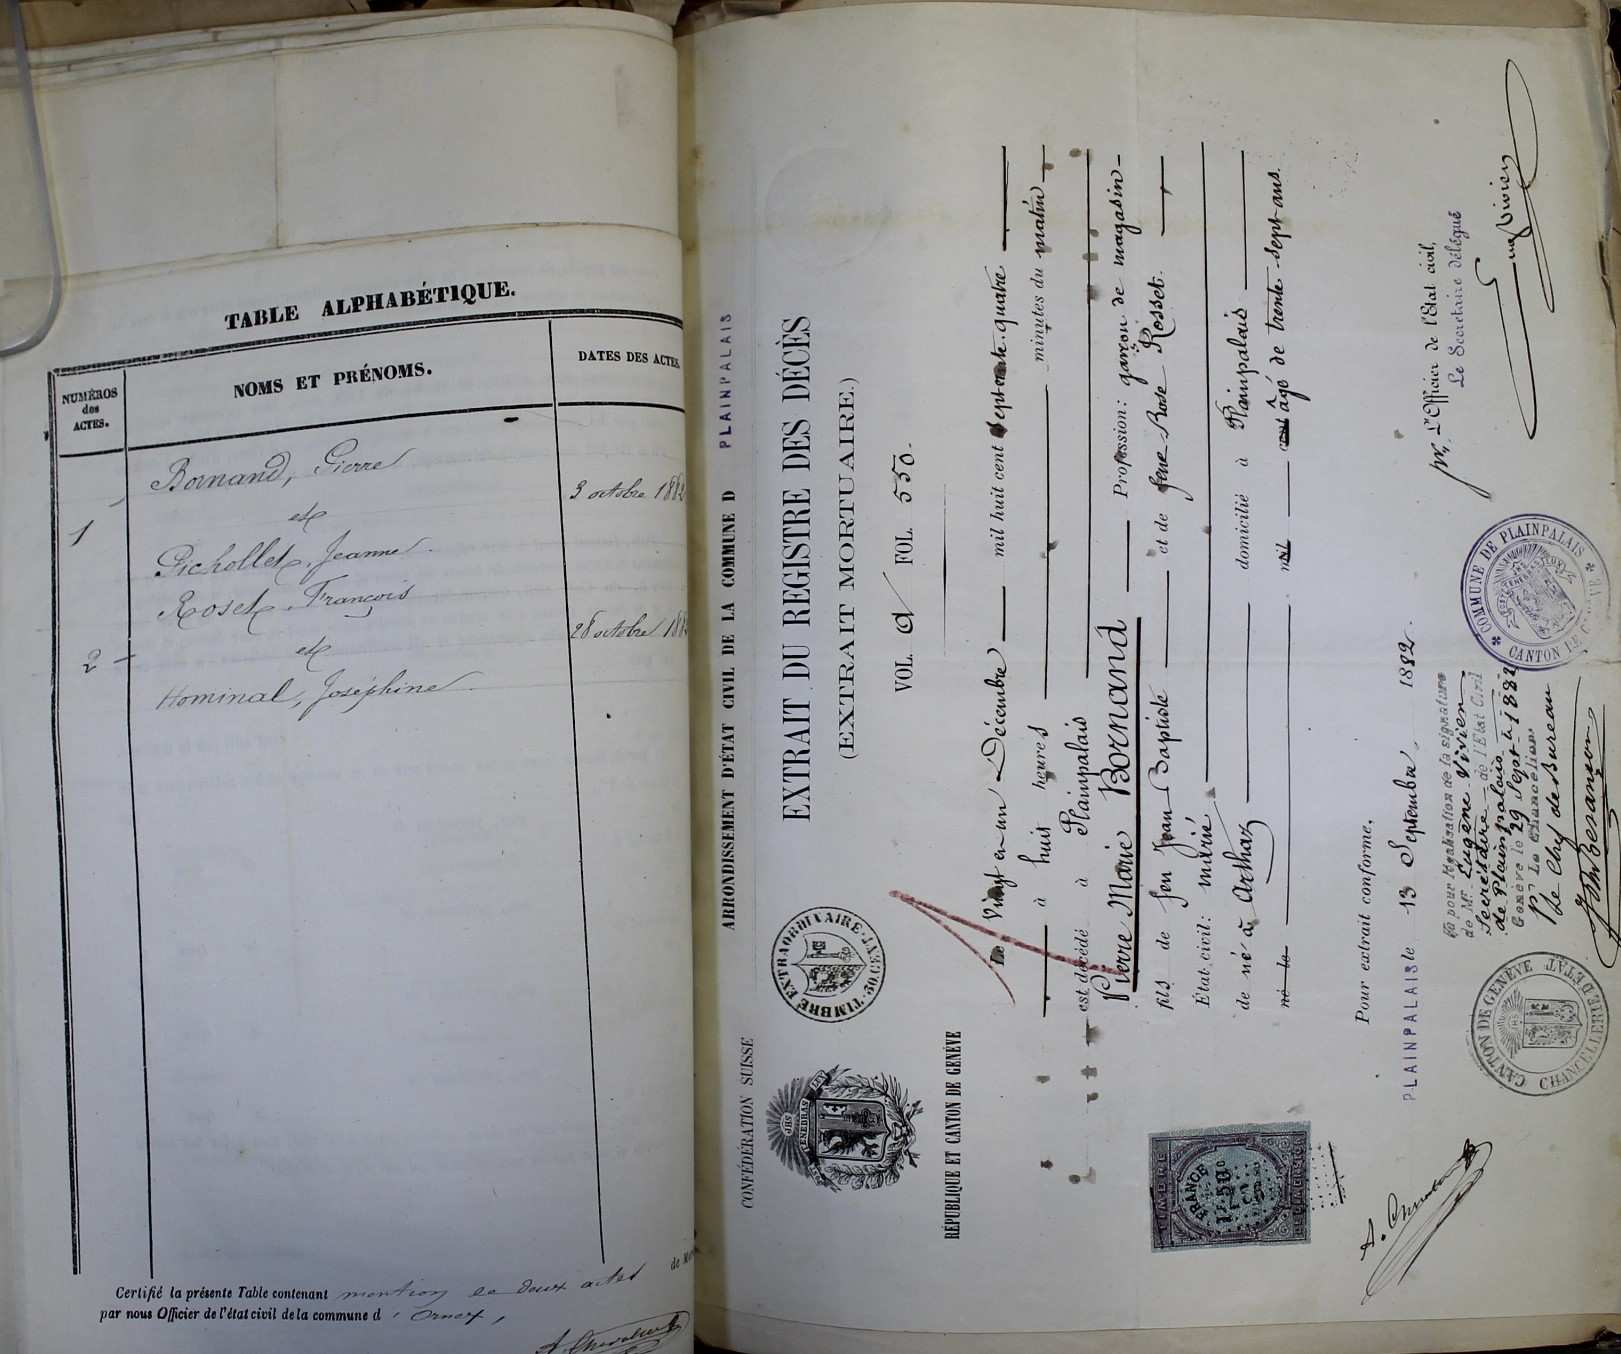 TABLE ALPHABÉTIQUE.
NUMÉROS des ACTES.
NOMS ET PRÉNOMS.
DATES DES ACTES.
Bornand, Pierre
1 et 3 octobre 1882
Pichollet, Jeanne
Roset, François
2 et 28 octobre 188
Hominal, Joséphine
Certifié la présente Table contenant mention de deux actes
par nous Officier de l'état civil de la commune d'Ornex,
A. Chevalier
CONFÉDÉRATION SUISSE
RÉPUBLIQUE ET CANTON DE GENÈVE
TIMBRE EXTRAORDINAIRE
ARRONDISSEMENT D'ÉTAT CIVIL DE LA COMMUNE D PLAINPALAIS
EXTRAIT DU REGISTRE DES DÉCÈS
(EXTRAIT MORTUAIRE.)
VOL. 9 FOL. 550.
Le Vingt en un Décembre mil huit cent Septante-quatre
à huit heures minutes du matin
est décédé à Plainpalais
Pierre Marie Bornand Profession: garçon de magasin
fils de feu Jean Baptiste et de feue Rose Rosset.
État civil: marié
de né à Arthaz domicilié à Plainpalais
né le mil âgé de trente-sept ans.
Pour extrait conforme,
PLAINPALAIS le 13 Septembre 1882.
pr, L'Officier de l'État civil,
Le Secrétaire délégué
Eug Vivien
COMMUNE DE PLAINPALAIS
CANTON DE GENÈVE
Vu pour légalisation de la signature
de Mr Eugène Vivien
Secrétaire de l'État Civil
de Plainpalais
Genève le 29 Sept 1882
Pr Le Chancelier
Le Chef de Bureau
CANTON DE GENÈVE
CHANCELLERIE D'ÉTAT
FRANCE
1F50c
A. Chevalier